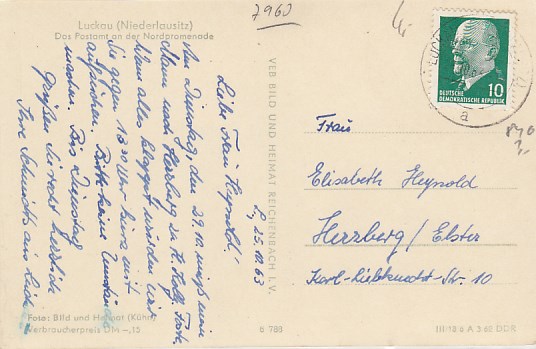 Luckau (Niederlausitz)
Das Postamt an der Nordpromenade
7960
L, 25.10.63
Liebe Frau Heynold!
Am Dienstag, den 29.10. muß mein
Mann nach Herzberg
Wenn alles klappt würden wir
Sie gegen 13.30 Uhr kurz mit
aufsuchen. Bitte keine Umstände
machen. Bis Dienstag
Grüßen Sie recht herzlich
Ihre Schmidts aus Luckau
Foto: Bild und Heimat (Kühn)
Verbraucherpreis DM –,15
VEB BILD UND HEIMAT REICHENBACH I. V.
6 788
10
DEUTSCHE
DEMOKRATISCHE REPUBLIK
LUCK
a
Frau
Elisabeth Heynold
Herzberg/Elster
Karl-Liebknecht-Str. 10
III/18 6 A 3 62 DDR